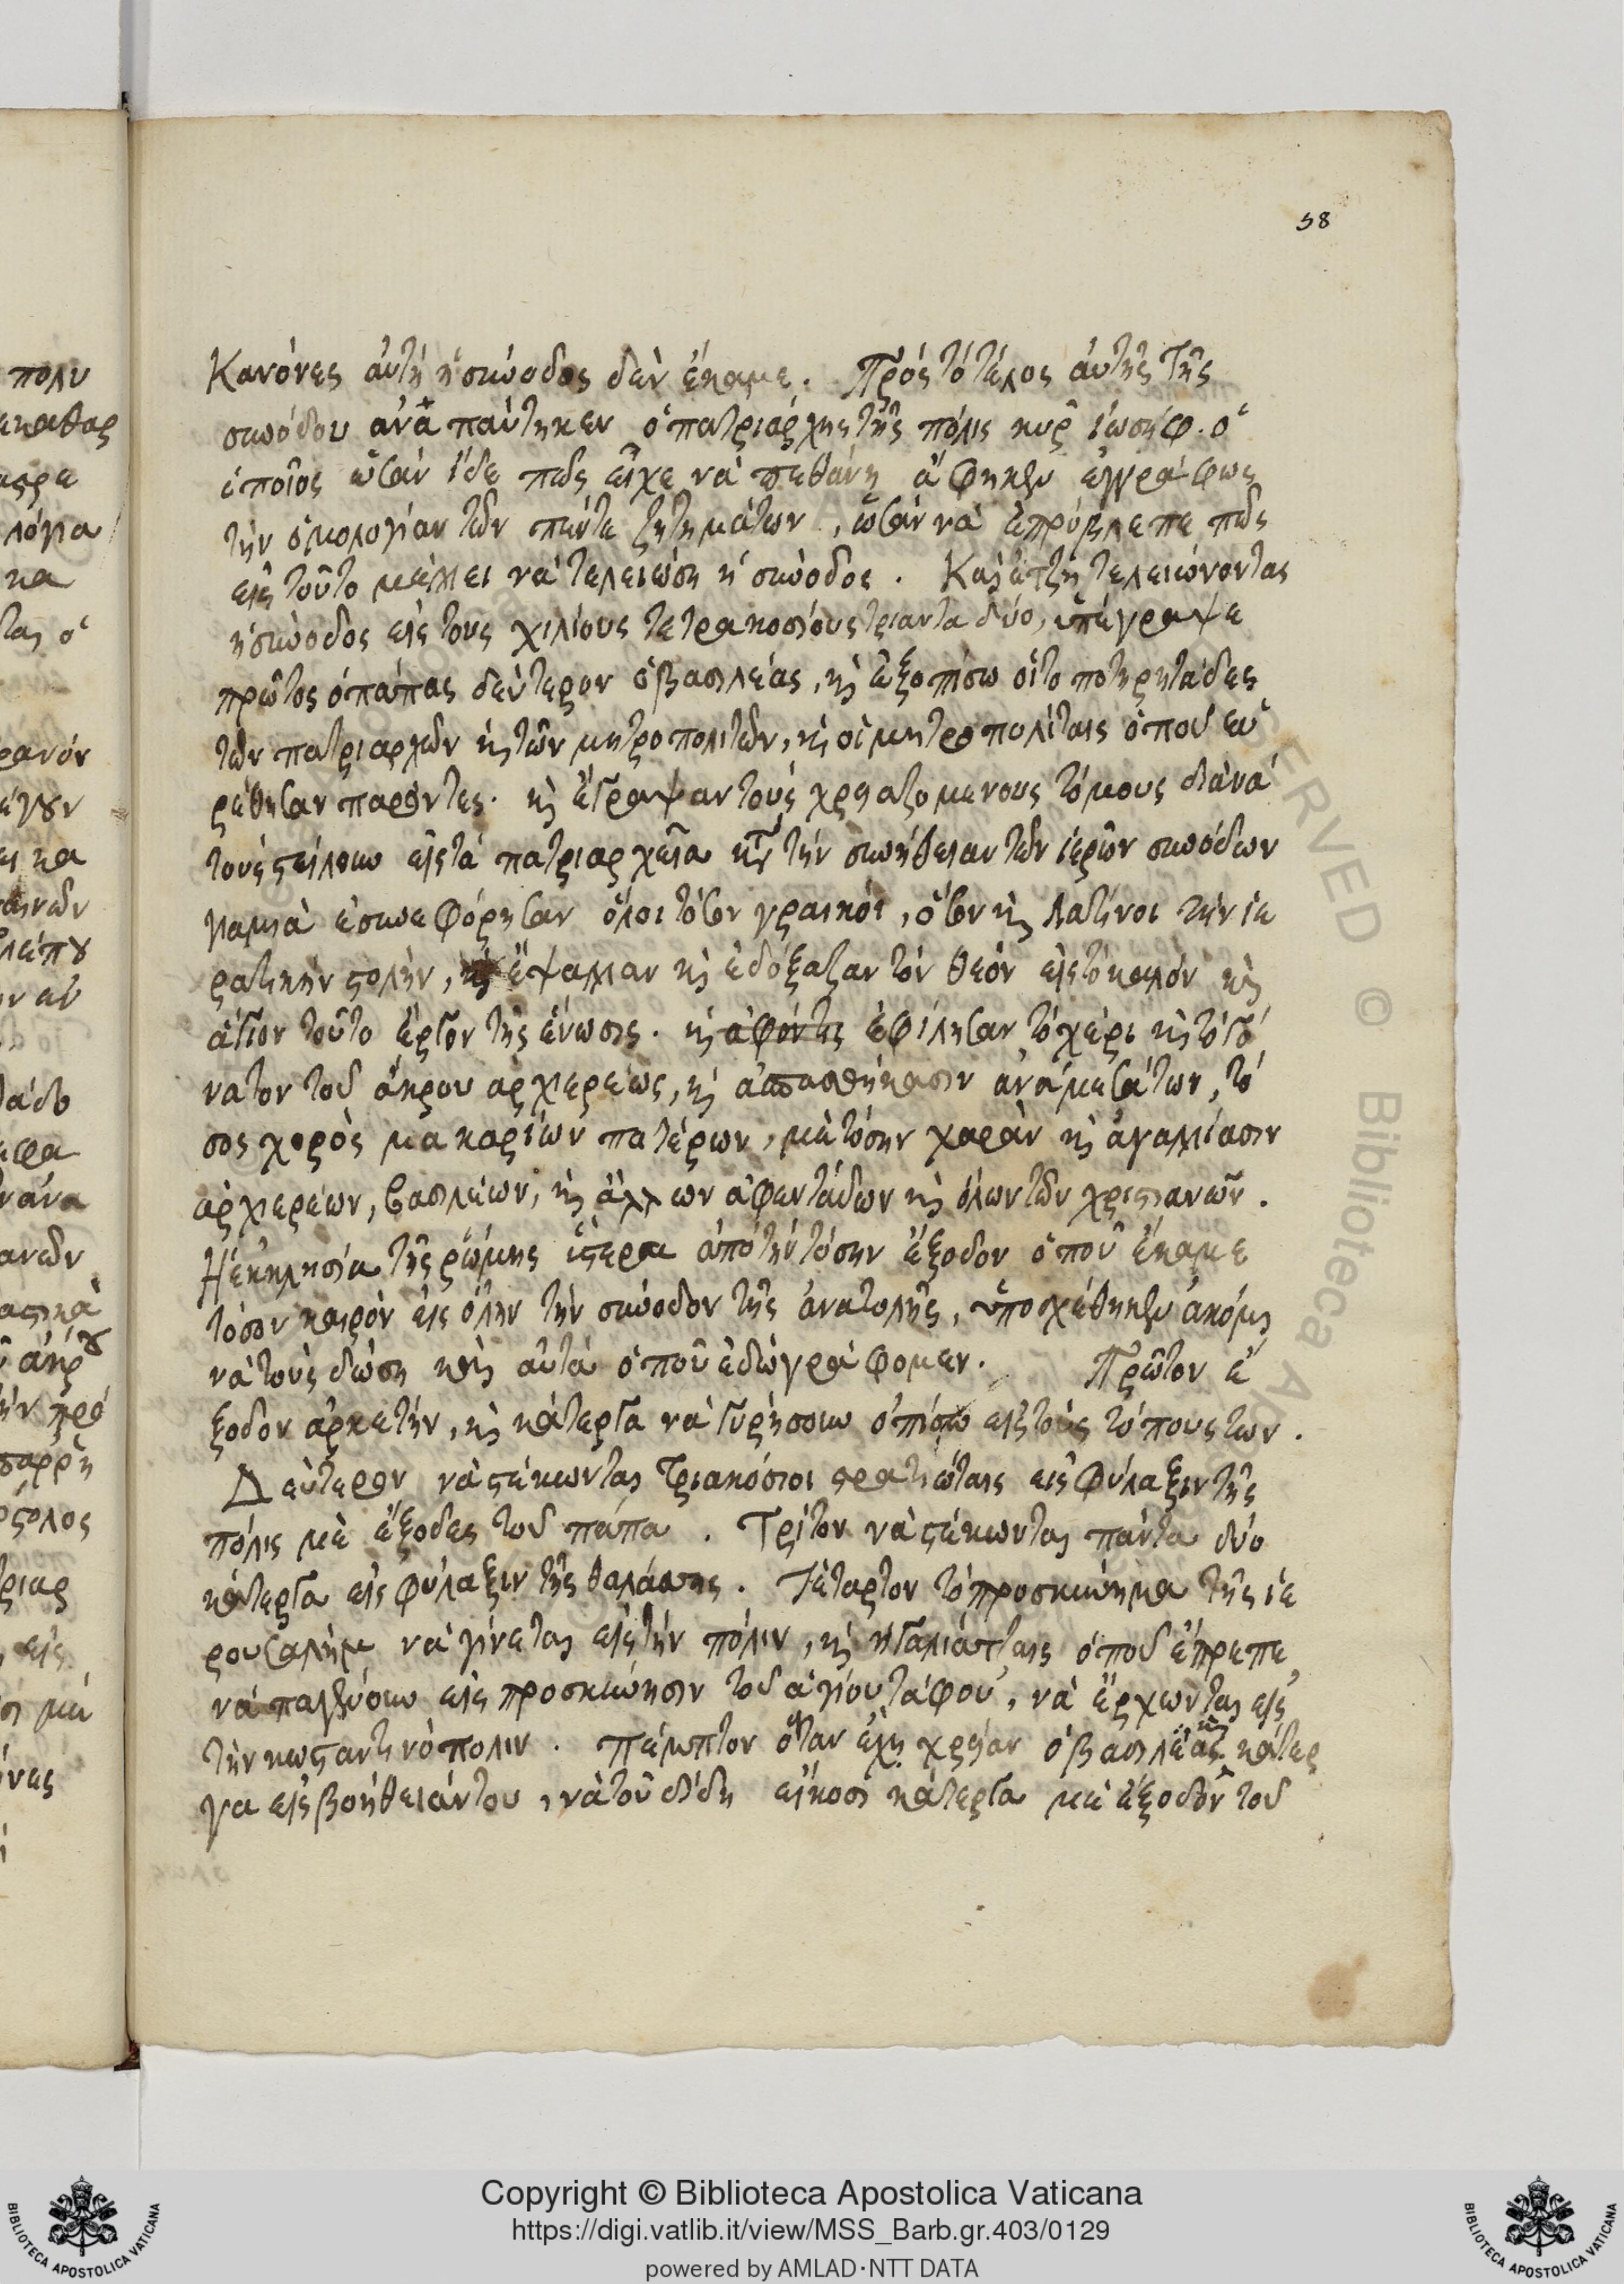 58
Κανόνες ἀυτὴ ἡ σύνοδος δὲν ἔκαμε. Πρὸς τὸ τέλος ἀυτῆς τῆς
συνόδου ἀναπαύτηκεν ὁ πατριάρχης τῆς πόλις κυρ ἰωσήφ. ὁ
ὁποῖος ὡσὰν ἴδε πῶς εἶχε νὰ πεθάνη ἄφηκεν ἐγγράφως
τὴν ὁμολογίαν τῶν πέντε ζητημάτων, ὡσὰν νὰ ἐπρόβλεπε πῶς
εἰς τοῦτο μέλλει νὰ τελειώση ἡ σύνοδος. Καὶ ἔτζη τελειώνοντας
ἡ σύνοδος εἰς τους χιλίους τετρακοσίους τριαντα δύο, ὑπέγραψε
πρῶτος ὁ πάπας δεύτερον ὁ βασιλέας, κὶ ἐξοπίσω οἱ τοποτηρητάδες
τῶν πατριαρχῶν κὶ τῶν μητροπολιτῶν, κὶ οἱ μητροπολίταις ὁποῦ εὑ
ρέθησαν παρόντες. κὶ ἔγραψαν τοὺς χρειαζομενους τόμους διὰ νὰ
τοὺς στείλουν εἰς τὰ πατριαρχεῖα κατὰ τὴν συνήθειαν τῶν ἱερῶν συνόδων
καμιὰ ἐσυνεφόρησαν ὅλοι τόσον γραικοὶ, ὅσον κὶ λατίνοι τὴν ἱε
ρατικὴν στολὴν, κὶ ἔψαλλαν κὶ ἐδόξαζαν τὸν θεὸν εἰς τὸ καλὸν κὶ
ἅγιον τοῦτο ἔργον τῆς ἕνωσις. κὶ ἀφόντις ἐφίλησαν τὸ χέρι κὶ τὸ γό
νατον τοῦ ἄκρου ἀρχιερέως, κὶ ἀσπασθήκασιν ἀνάμεσά των, τό
σος χορὸς μακαρίων πατέρων, μὲ τόσην χαρὰν κὶ ἀγαλλίασιν
ἀρχιερέων, βασιλέων, κὶ ἄλλων ἀφεντάδων κὶ ὅλων τῶν χριστιανῶν.
Ἡ ἐκκλησία τῆς ῥώμης ὕστερα ἀπὸ τὴν τόσην ἔξοδον ὁποῦ ἔκαμε
τόσον καιρὸν εἰς ὅλην τὴν σύνοδον τῆς ἀνατολῆς, ὑποσχέθηκεν ἀκόμι
νὰ τοὺς δώση καὶ αὐτὰ ὁποῦ ἐδῶ γράφομεν. Πρῶτον ἔ
ξοδον ἀρκετὴν, κὶ κάτεργα νὰ γυρήσουν ὀπίσω εἰς τοὺς τόπους των.
Δεύτερον νὰ στέκωνται τριακόσιοι στρατιώταις εἰς φύλαξιν τῆς
πόλις μὲ ἔξοδες τοῦ πάπα. Τρίτον νὰ στέκωνται πάντα δύο
κάτεργα εἰς φύλαξιν τῆς θαλάσσης. Τέταρτον τὸ προσκύνημα τῆς ἱε
ρουσαλὴμ νὰ γίνεται εἰς τὴν πόλιν, κὶ ἡ γαλιότταις ὁποῦ ἔπρεπε
νὰ παγένουν εἰς προσκύνησιν τοῦ ἁγίου τάφου, νὰ ἔρχωνται εἰς
τὴν κωσταντινόπολιν. Πέμπτον ὅταν ἔχη χρείαν ὁ βασιλέας κάτερ
γα εἰς βοήθειάν του, νὰ τοῦ δίδη εἴκοσι κάτεργα μὲ ἔξοδον τοῦ
Copyright © Biblioteca Apostolica Vaticana
https://digi.vatlib.it/view/MSS_Barb.gr.403/0129
powered by AMLAD·NTT DATA